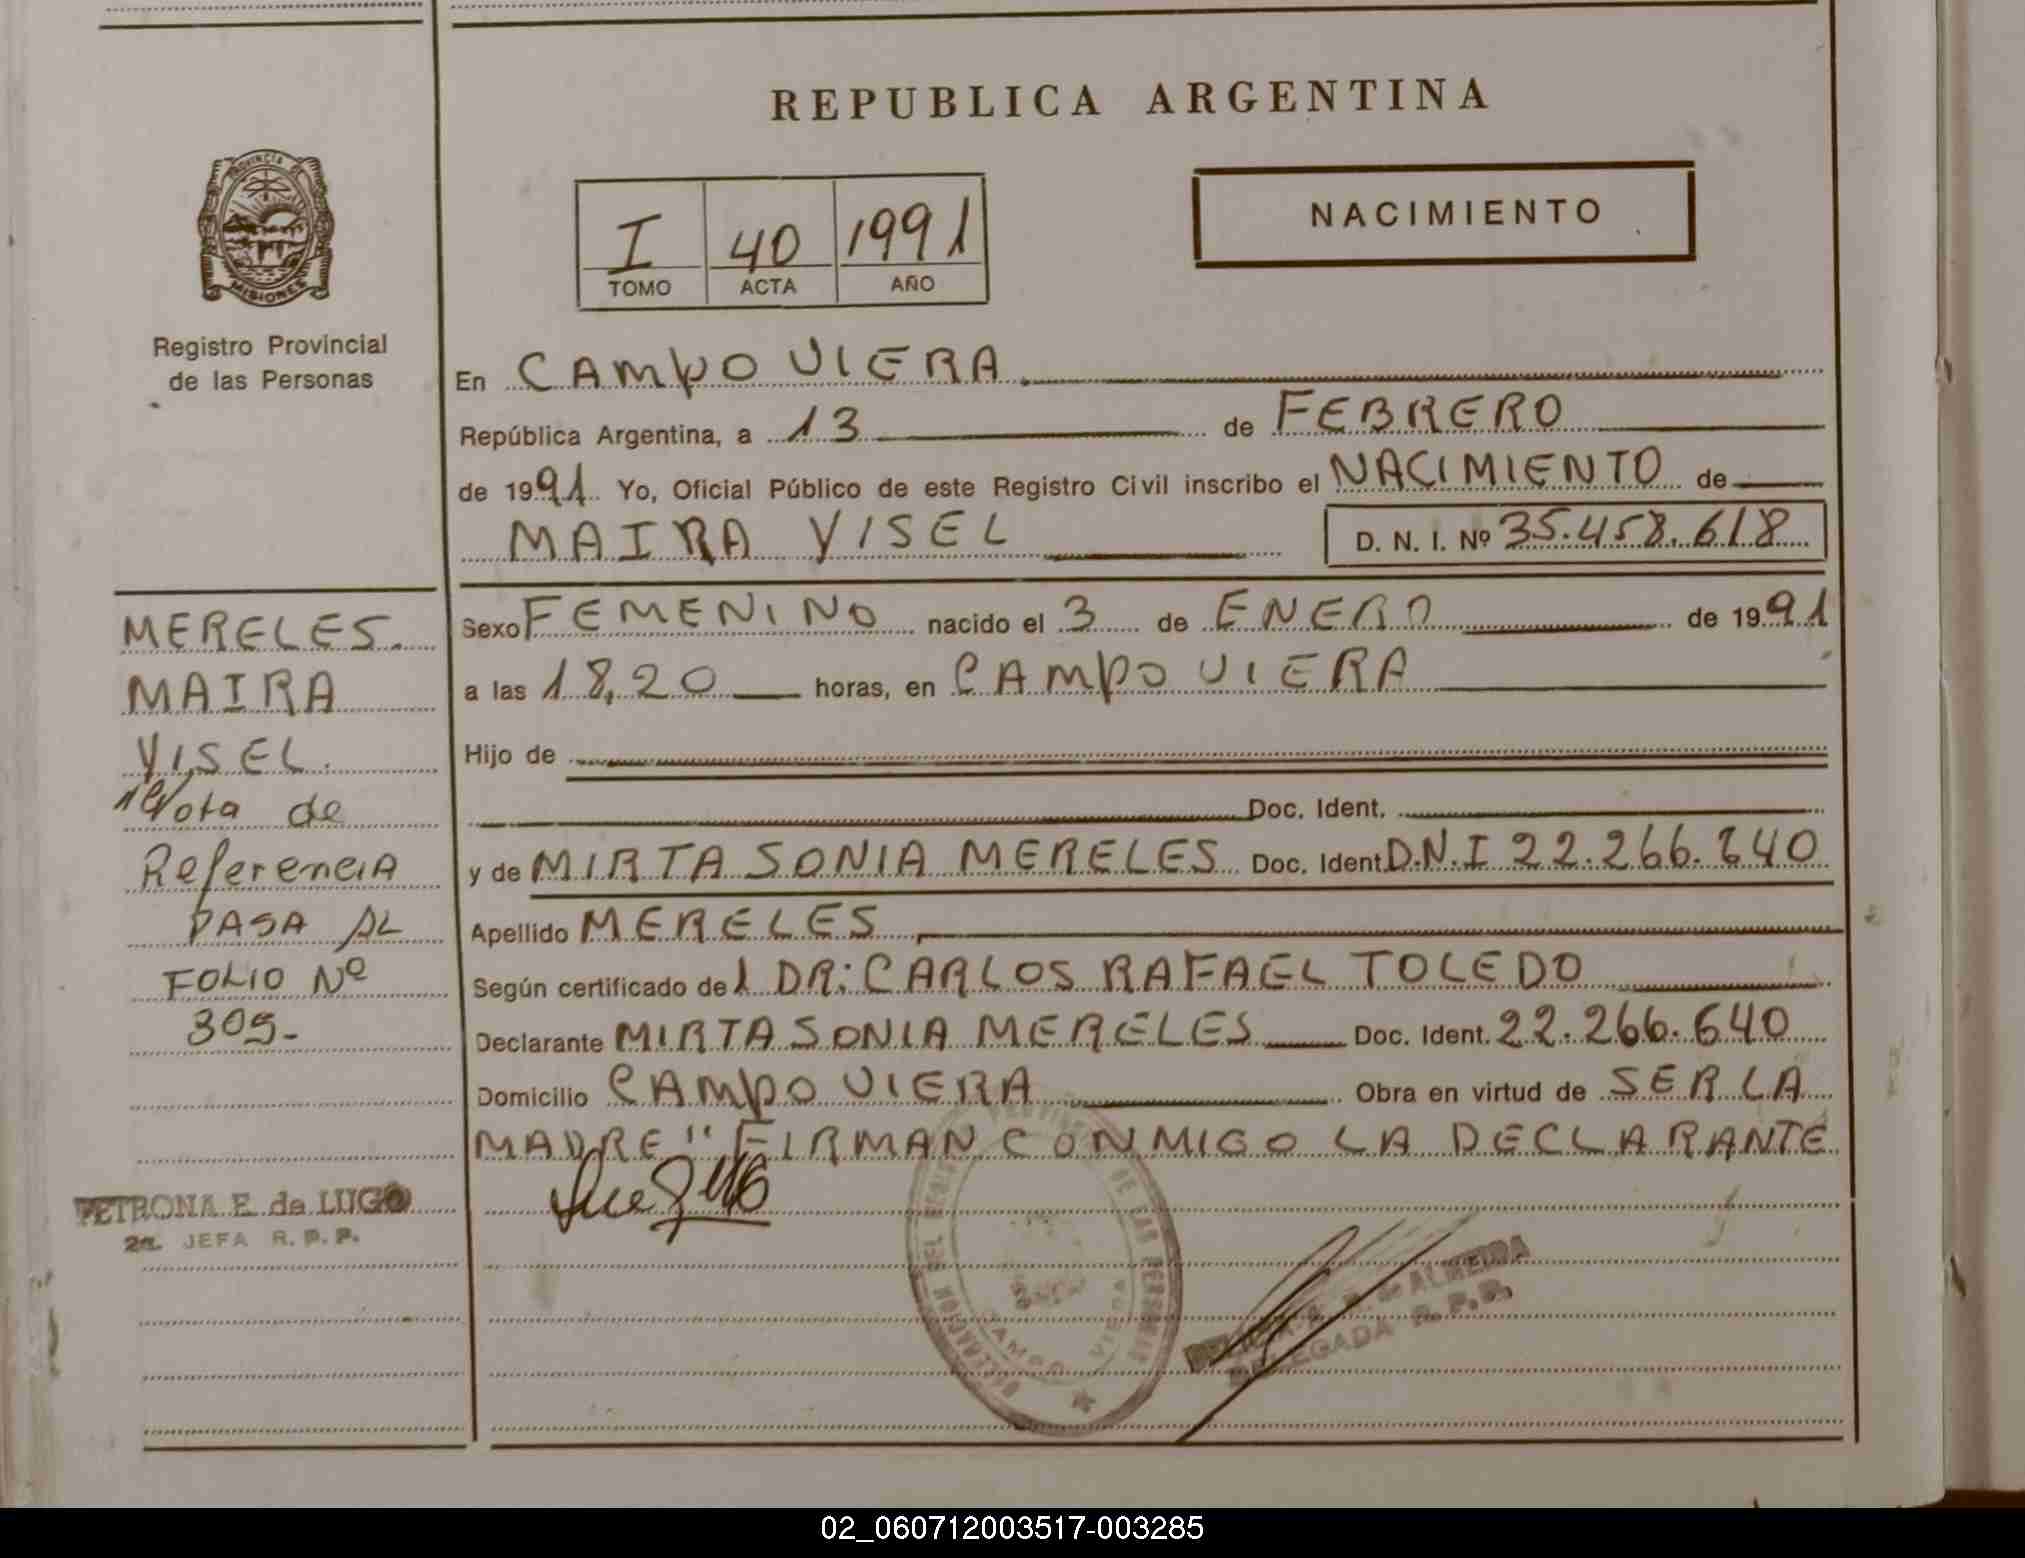 REPUBLICA ARGENTINA
PROVINCIA DE
MISIONES
Registro Provincial
de las Personas
I 40 1991
TOMO ACTA AÑO
NACIMIENTO
En CAMPO VIERA
República Argentina, a 13 de FEBRERO
de 1991 Yo, Oficial Público de este Registro Civil inscribo el NACIMIENTO de
MAIRA YISEL D. N. I. Nº 35.458.618
Sexo FEMENINO nacido el 3 de ENERO de 1991
a las 18,20 horas, en CAMPO VIERA
Hijo de
Doc. Ident.
y de MIRTA SONIA MERELES Doc. Ident. D.N.I 22.266.640
Apellido MERELES
Según certificado del DR: CARLOS RAFAEL TOLEDO
Declarante MIRTA SONIA MERELES Doc. Ident. 22.266.640
Domicilio CAMPO VIERA Obra en virtud de SER LA
MADRE" FIRMAN CONMIGO LA DECLARANTE
MERELES.
MAIRA
YISEL.
Nota de
Referencia
PASA AL
FOLIO Nº
309-
PETRONA E. de LUGO
2a. JEFA R. P. P.
DE LAS PERSONAS
CAMPO VIERA
de ALMEIDA
DELEGADA R. P. P.
02_060712003517-003285